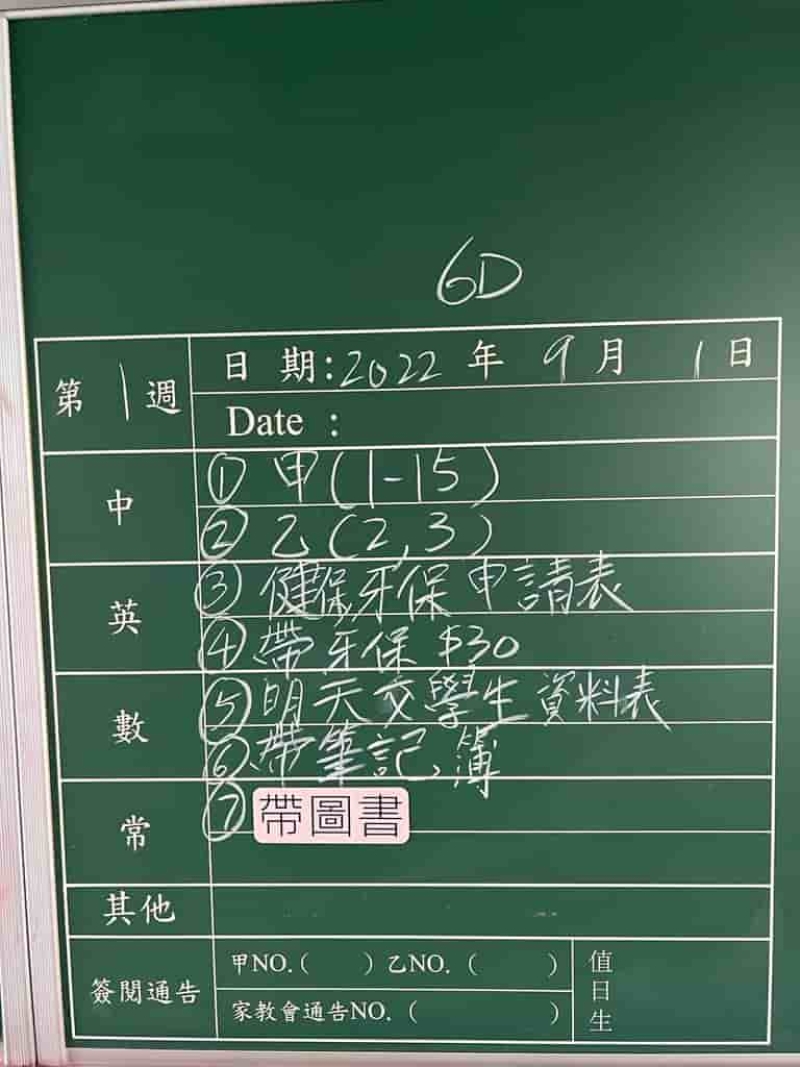 6D
第 1 週
日 期:2022 年 9 月 1 日
Date :
中
① 甲(1-15)
② 乙(2,3)
英
③ 健保牙保申請表
④ 帶牙保 $30
數
⑤ 明天交學生資料表
⑥ 帶筆記簿
常
⑦ 帶圖書
其他
簽閱通告
甲NO.( ) 乙NO. ( )
家教會通告NO. ( )
值日生